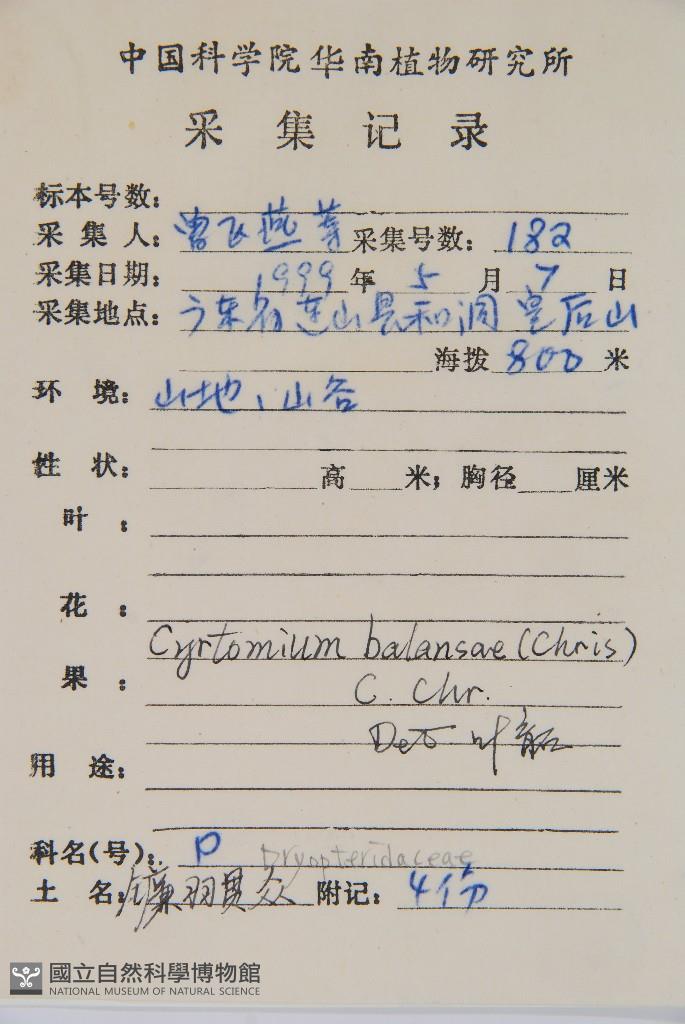 中国科学院华南植物研究所
采集记录
标本号数:
采集人: 曾飞燕等 采集号数: 182
采集日期: 1999 年 5 月 7 日
采集地点: 广东省连山县和洞皇后山
海拨 800 米
环境: 山地、山谷
性状: 高 米; 胸径 厘米
叶:
花:
Cyrtomium balansae (Chris)
果:
C. Chr.
Det 叶
用途:
科名(号): P Dryopteridaceae
土名: 镰羽贯众 附记: 4份
國立自然科學博物館
NATIONAL MUSEUM OF NATURAL SCIENCE